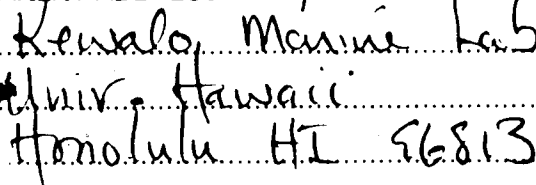 Kewalo Marine Lab
Univ. Hawaii
Honolulu HI 96813